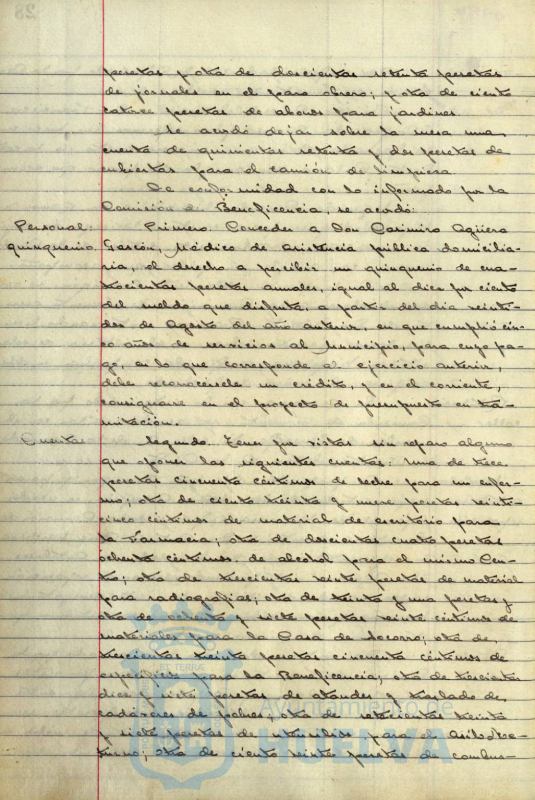 pesetas y otra de doscientas setenta pesetas
de jornales en el paro obrero; y otra de ciento
catorce pesetas de abonos para jardines.
Se acordó dejar sobre la mesa una
cuenta de quinientas setenta y dos pesetas de
cubiertas para el camión de limpieza.
De conformidad con lo informado por la
Comisión de Beneficencia, se acordó:
Personal: Primero. Conceder a Don Casimiro Agüera
quinquenio. Gascón, Médico de Asistencia pública domicilia-
ria, el derecho a percibir un quinquenio de cua-
trocientas pesetas anuales, igual al diez por ciento
del sueldo que disfruta, a partir del día veinti-
dos de Agosto del año anterior, en que cumplió cin-
co años de servicios al Municipio, para cuyo pa-
go, en lo que corresponde al ejercicio anterior,
debe reconocersele un crédito, y en el corriente,
consignarse en el proyecto de presupuesto en tra-
mitación.
Cuentas Segundo. Tener por vistas sin reparo alguno
que oponer las siguientes cuentas: Una de trece
pesetas cincuenta céntimos de leche para un enfer-
mo; otra de ciento treinta y nueve pesetas veinti-
cinco céntimos de material de escritorio para
la Farmacia; otra de doscientas cuatro pesetas
ochenta céntimos de alcohol para el mismo Cen-
tro; otra de trescientas veinte pesetas de material
para radiografias; otra de treinta y una pesetas y
otra de ochenta y siete pesetas veinte céntimos de
materiales para la Casa de Socorro; otra de
trescientas treinta pesetas cincuenta céntimos de
específicos para la Beneficencia; otra de trescientas
diez y siete pesetas de ataudes y traslado de
cadáveres de pobres; otra de setecientas treinta
y siete pesetas de utensilios para el Asilo Noc-
turno; otra de ciento veinte pesetas de combus-
Ayuntamiento de
HUELVA